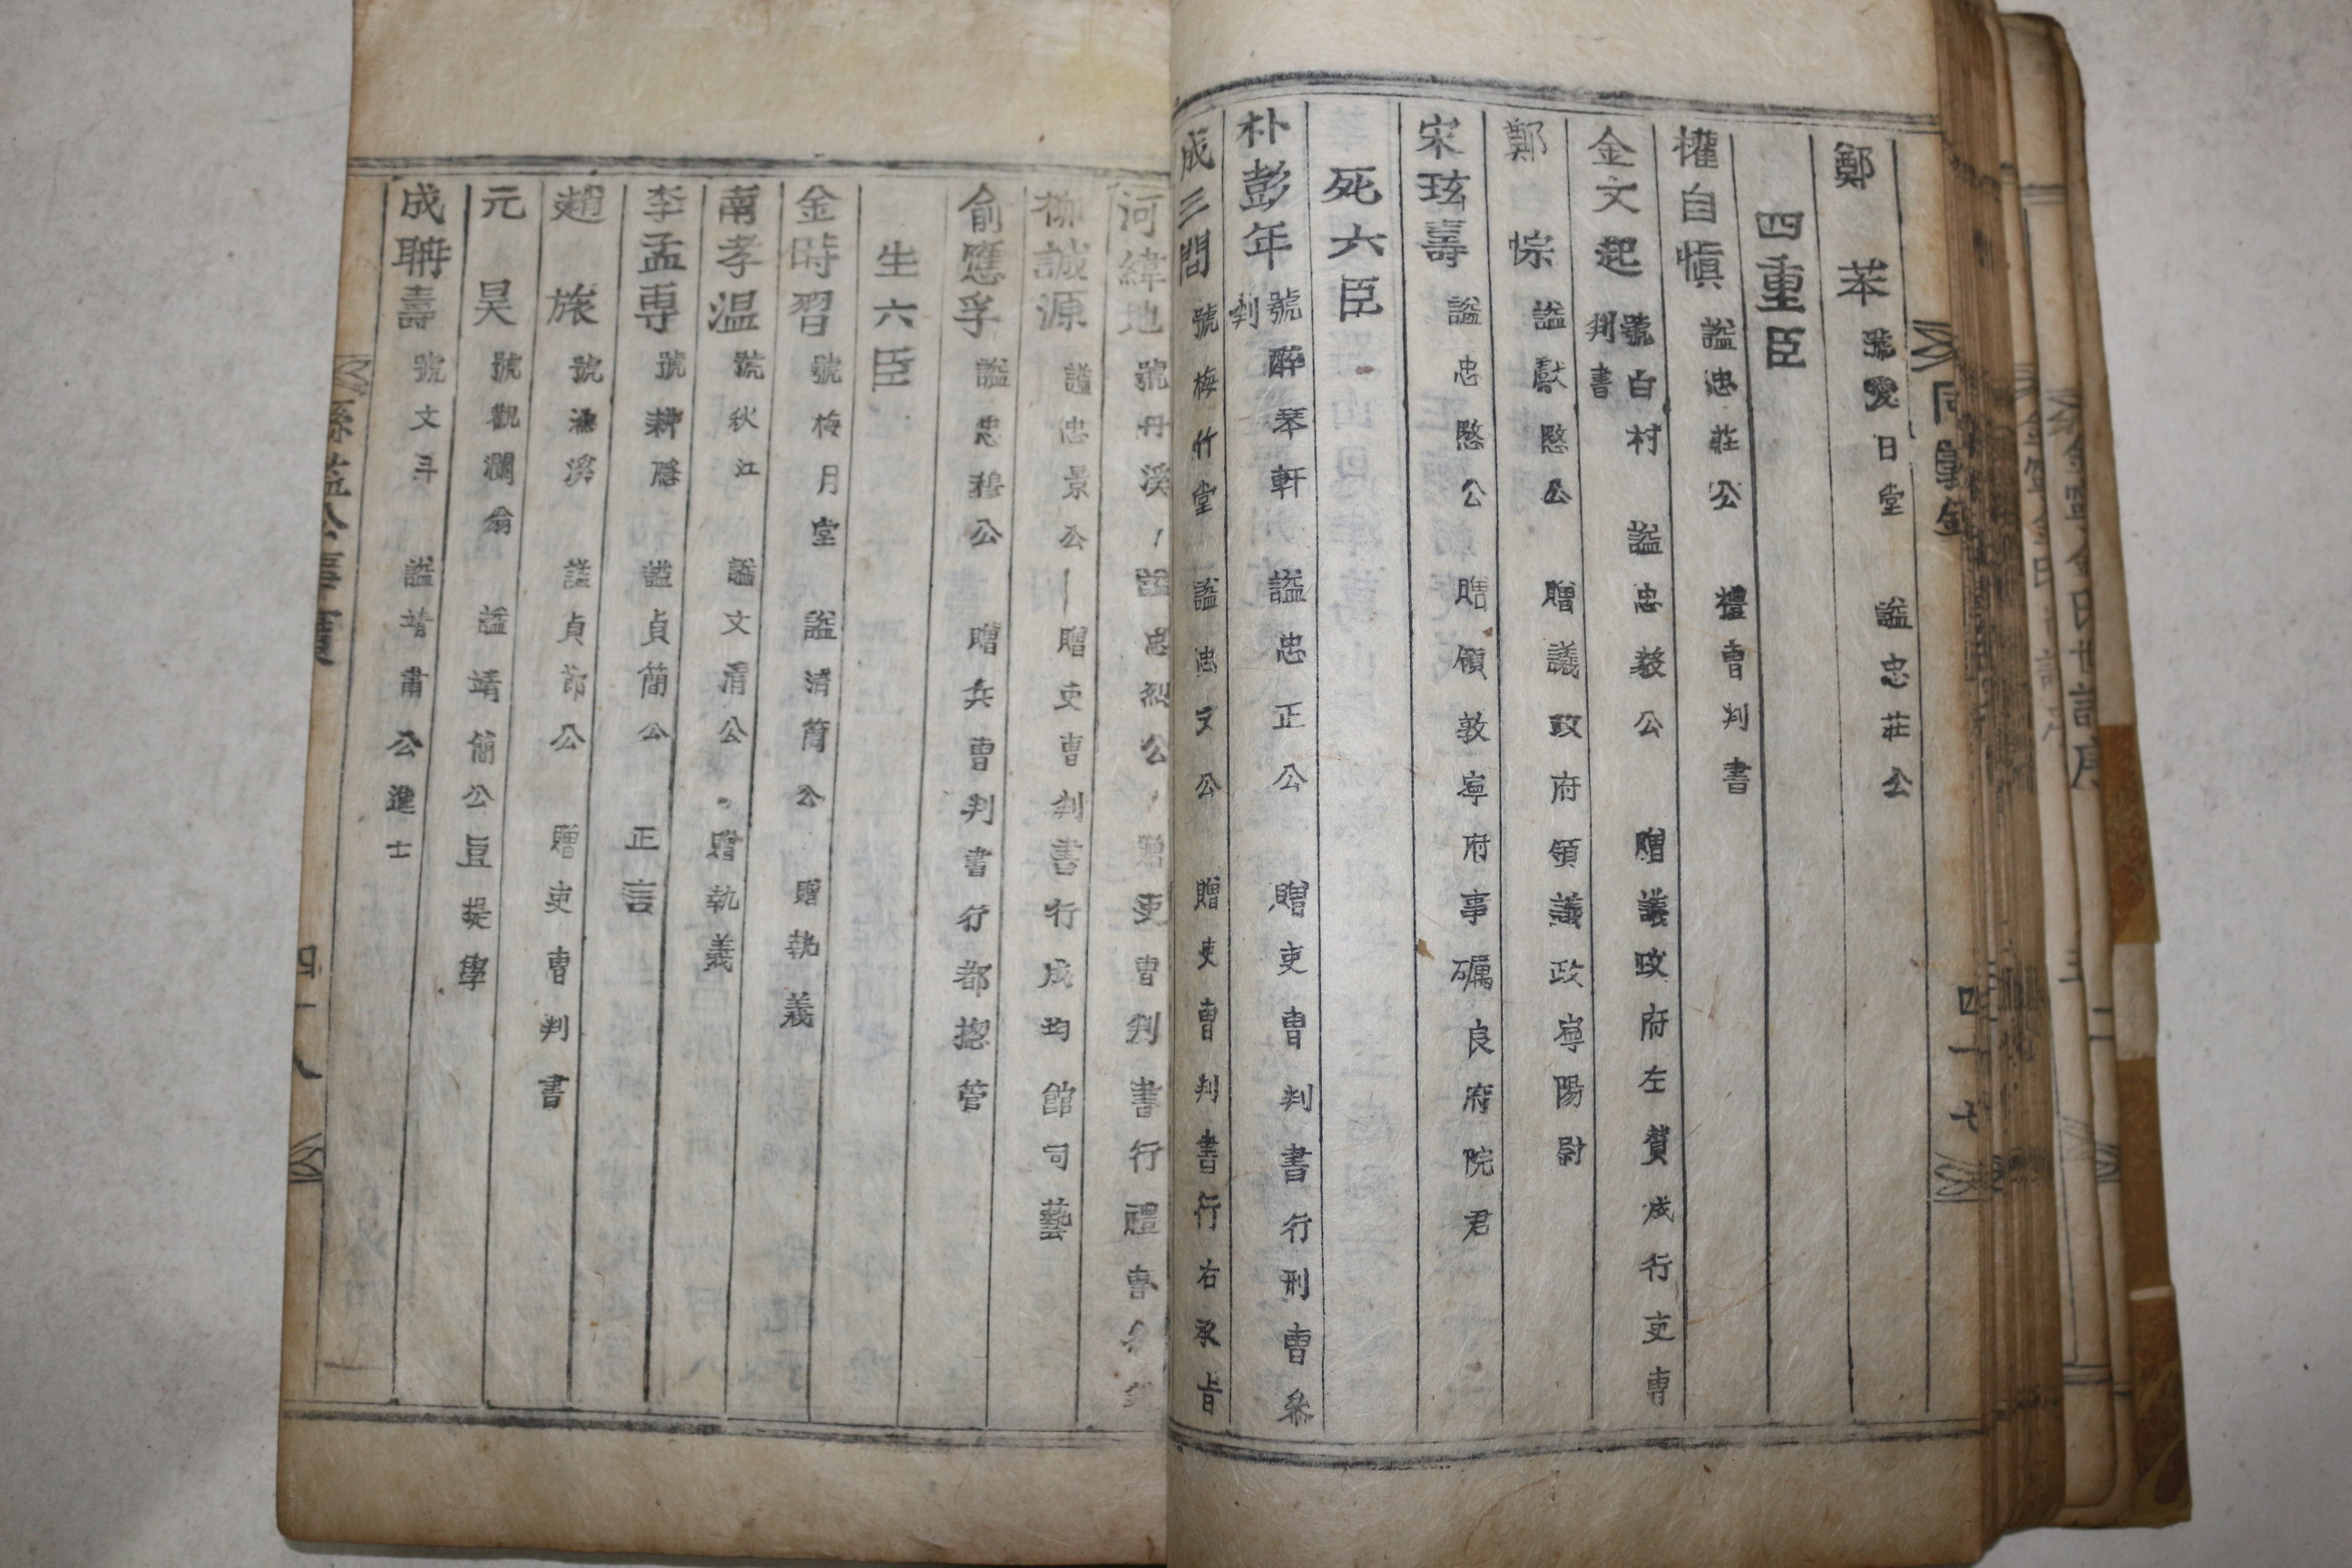 鄭 苯 號愛日堂 謚忠莊公
四重臣
權自愼 謚忠莊公 禮曺判書
金文起 號白村 謚忠毅公 贈議政府左賛成行吏曺
判書
鄭 悰 謚獻愍公 贈議政府領議政寧陽尉
宋玹壽 謚忠愍公 贈領敦寧府事礪良府院君
死六臣
朴彭年 號醉琴軒 謚忠正公 贈吏曺判書行刑曺叅
判
成三問 號梅竹堂 謚忠文公 贈吏曺判書行右承旨
河緯地 號丹溪 謚忠烈公 贈吏曺判書行禮曺
柳誠源 謚忠景公 贈吏曺判書行成均館司藝
俞應孚 謚忠穆公 贈兵曺判書行都摠管
生六臣
金時習 號梅月堂 謚清簡公 贈執義
南孝温 號秋江 謚文淸公 贈執義
李孟専 號耕隱 謚貞簡公 正言
趙 旅 號漁溪 謚貞節公 贈吏曺判書
元 昊 號觀瀾翁 謚靖簡公直提學
成聃壽 號文斗 謚靖肅公進士
四十七
四十八